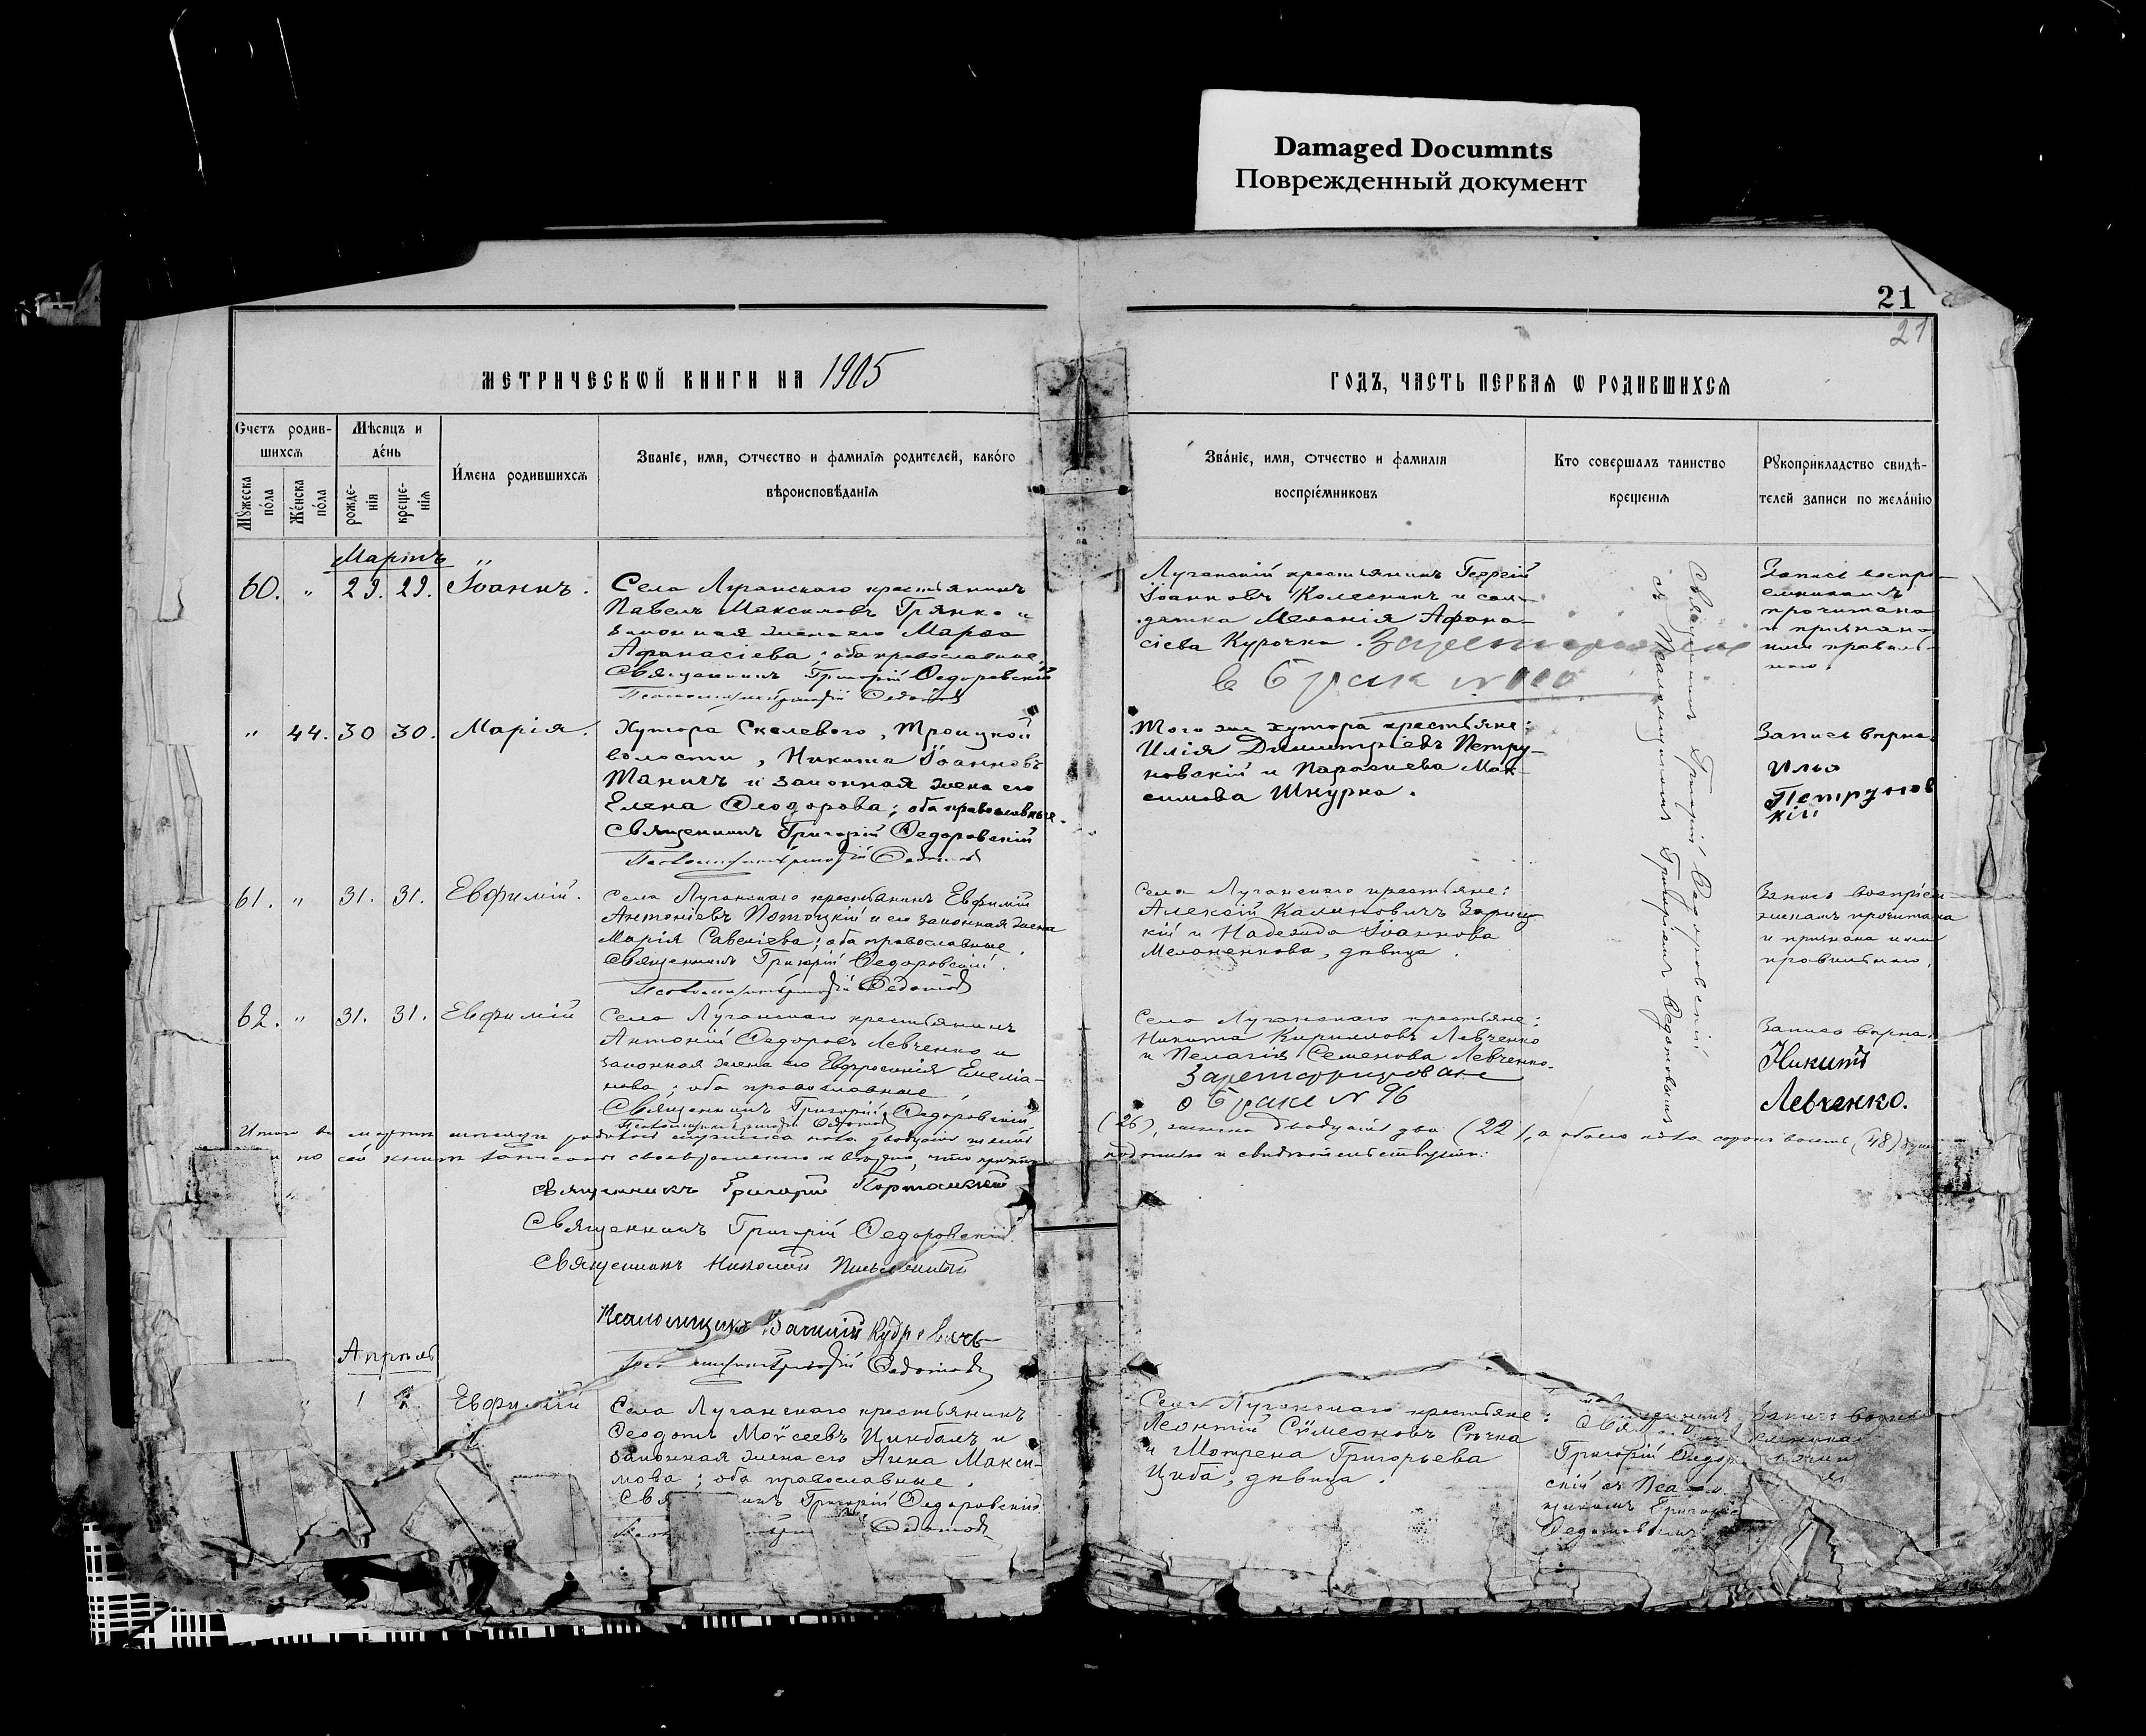 Damaged Documnts
Поврежденный документ
21
21
МЕТРИЧЕСКѠЙ КНИГИ НА 1905
ГОДЪ, ЧАСТЬ ПЕРВАѦ Ѡ РОДИВШИХСѦ
Счетъ родив-
шихсѧ
Мꙋжеска пола
Женска пола
Мѣсѧцъ и
день
рожде-
нїѧ
креще-
нїѧ
Имена родившихсѧ
Званїе, имѧ, отчество и фамилїѧ родителей, какого
вѣроисповѣданїѧ
Званїе, имѧ, отчество и фамилїѧ
воспрїемниковъ
Кто совершалъ таинство
крещенїѧ
Рꙋкоприкладство свидѣ-
телей записи по желанїю
Мартъ
60. " 29. 29. Іоаннъ.
Села Луганскаго крестьянинъ
Павелъ Максимовъ Грянко и
законная жена его Марѳа
Афанасіева; оба православные
Священникъ Григорій Ѳедоровскій
Псаломщикъ Григорій Ѳедотов
Луганскій крестьянинъ Георгій
Іоанновъ Колесникъ и сол-
датка Меланія Афона-
сіева Курочка.
в брак №
Запись воспрі-
емникамъ
прочитана
и признана
ими правиль-
ною.
Священникъ Григорій Ѳедоровскій
съ Псаломщикомъ Григоріемъ Ѳедотовымъ
" 44. 30 30. Марія.
Хутора Скелевого, Троицкой
волости, Никита Іоанновъ
Маничъ и законная жена его
Елена Ѳеодорова; оба православные.
Священникъ Григорій Ѳедоровскій
Псаломщикъ Григорій Ѳедотов
Того же хутора крестьяне:
Илія Димитріевъ Петру-
новскій и Параскева Мак-
симова Шкурко.
Запись вѣрна.
Илья
Петрунов
кій
61. " 31. 31. Евфимій.
Села Луганскаго крестьянинъ Евфимій
Антоніевъ Потоцкій и его законная жена
Марія Савеліева; оба православные.
Священникъ Григорій Ѳедоровскій.
Псаломщикъ Григорій Ѳедотов
Села Луганскаго крестьяне:
Алексій Калиновичъ Зариц-
кій и Надежда Іоаннова
Мелоненкова, дѣвица.
Запись воспріем-
никамъ прочитана
и признана ими
правильною.
62. " 31. 31. Евфимій
Села Луганскаго крестьянинъ
Антоній Ѳедоровъ Левченко и
законная жена его Евфросинія Емеліа-
нова; оба православные
Священникъ Григорій Ѳедоровскій
Псаломщикъ Григорій Ѳедотов
Села Луганскаго крестьяне:
Никита Кирилловъ Левченко
и Пелагія Семенова Левченко.
Зарегистрирован
о браке № 96
Запись вѣрна.
Никита
Левченко.
Итого въ мартѣ мѣсяцѣ родилось мужеска пола двадцать шесть
(26), женска двадцать два (22), а обоего пола сорокъ восемь (48) душъ
по сей книгѣ записаны своевременно и вѣрно, что
подписью и свидѣтельствуемъ:
Священникъ Григорій
Священникъ Григорій Ѳедоровскій.
Священникъ Николай
Псаломщикъ Василій
Псаломщикъ Григорій Ѳедотов
Апрѣль
" 1 Евфимій
Села Луганскаго крестьянинъ
Ѳеодотъ Моѵсеевъ Цимбалъ и
законная жена его Анна Макси-
мова; оба православные.
Григорій Ѳедоровскій.
Ѳедотов
Села Луганскаго крестьяне:
Леонтій Сѵмеоновъ Сѣчка
и Мотрена Григорьева
Циба, дѣвица.
Священникъ
Григорій
Запись вѣрна